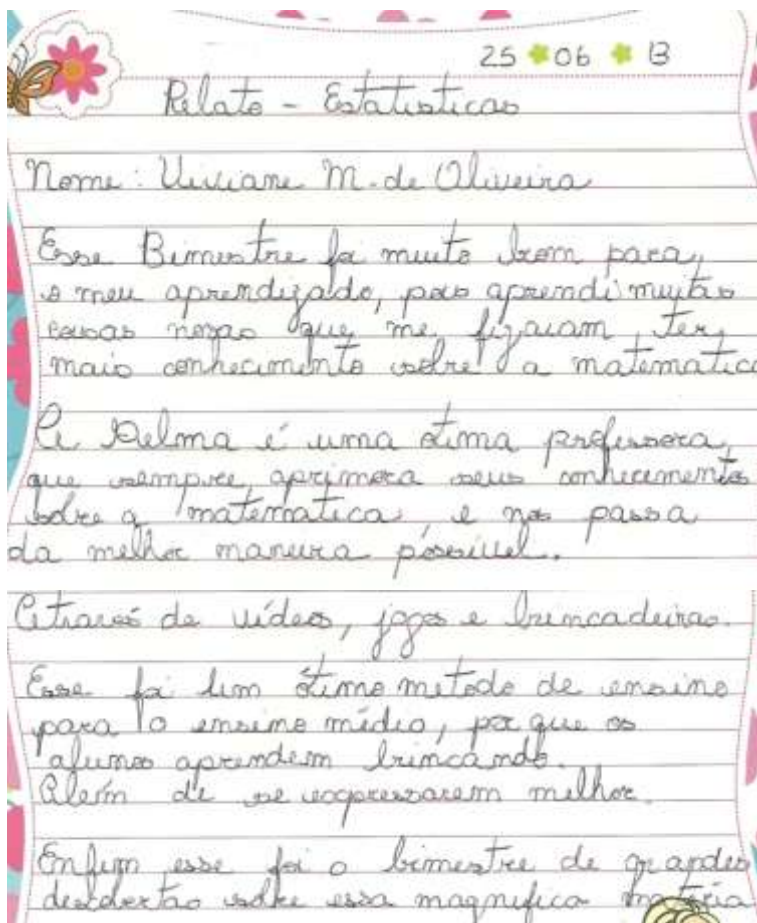 25 06 13
Relato - Estatisticas
Nome: Viviane M. de Oliveira
Esse Bimestre foi muito bom para
o meu aprendizado, pois aprendi muitas
coisas novas que me fizaram ter
mais conhecimento sobre a matematica
A Selma é uma ótima professora
que sempre aprimora seus conhecimentos
sobre a matematica, e nos passa
da melhor maneira póssivel.
Através de vídeos, jogos e brincadeiras.
Esse foi um ótimo metodo de ensino
para o ensino médio, por que os
alunos aprendem brincando.
Além de se expressarem melhor.
Enfim esse foi o bimestre de grandes
descobertas sobre essa magnifica materia